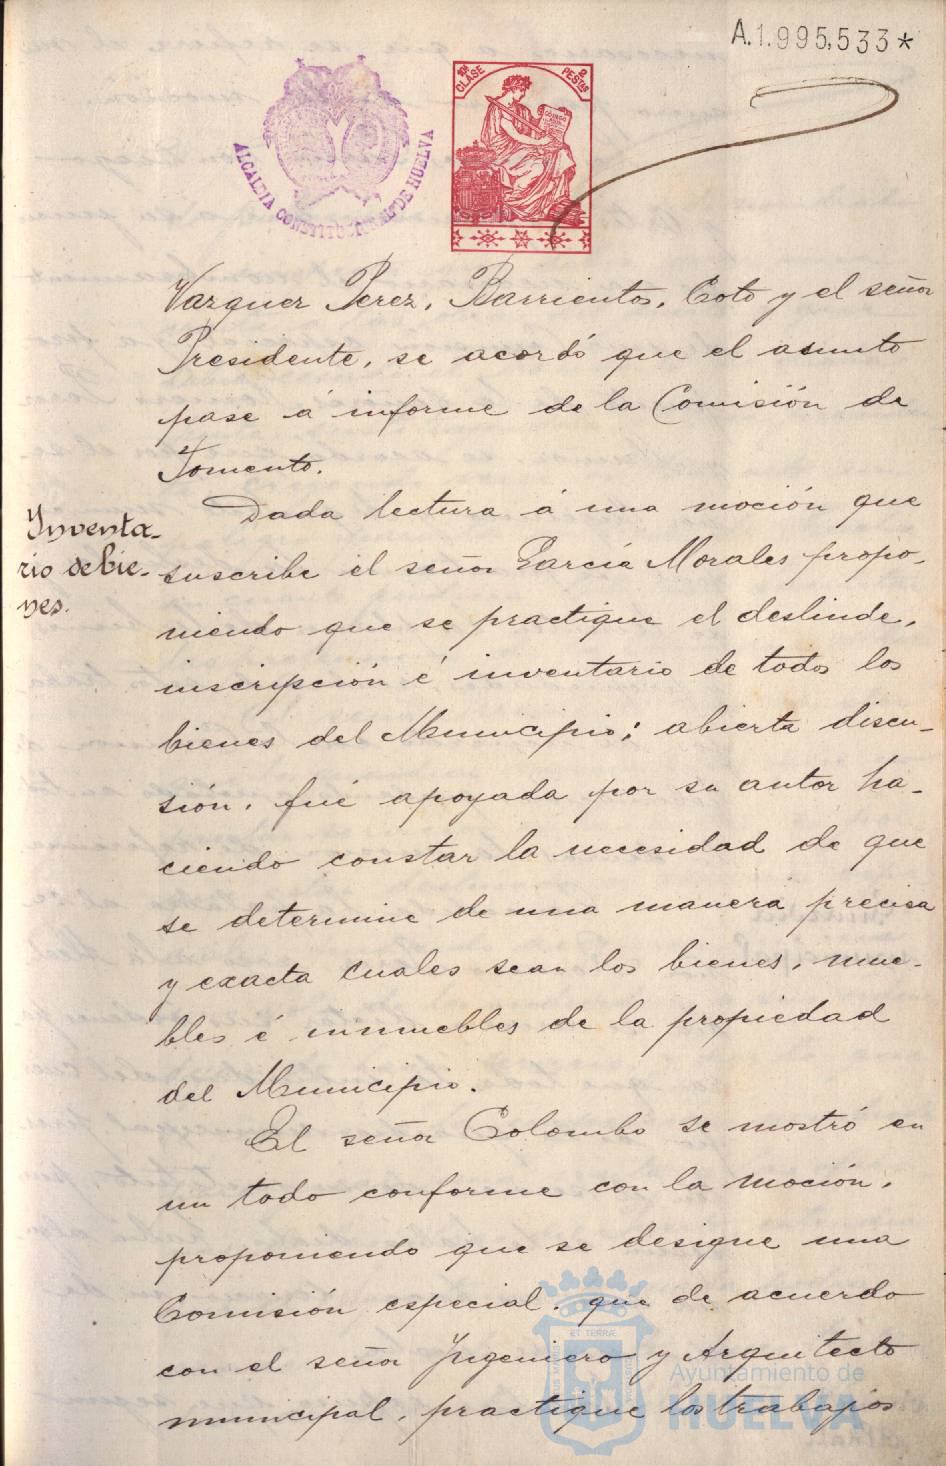 A.1.995,533*
10ª CLASE
2 PESTAS
ALCALDIA CONSTITUCIONAL DE HUELVA
Vazquez Perez, Barrientos, Coto y el señor
Presidente, se acordó que el asunto
pase á informe de la Comisión de
Fomento.
Inventa-
rio de bie-
nes.
Dada lectura á una moción que
suscribe el señor García Morales propo-
niendo que se practique el deslinde,
inscripción é inventario de todos los
bienes del Municipio; abierta discu-
sión, fué apoyada por su autor ha-
ciendo constar la necesidad de que
se determine de una manera precisa
y exacta cuales sean los bienes, mue-
bles é inmuebles de la propiedad
del Municipio.
El señor Colombo se mostró en
un todo conforme con la moción,
proponiendo que se designe una
Comisión especial, que de acuerdo
con el señor Ingeniero y Arquitecto
municipal, practique los trabajos
Ayuntamiento de
HUELVA